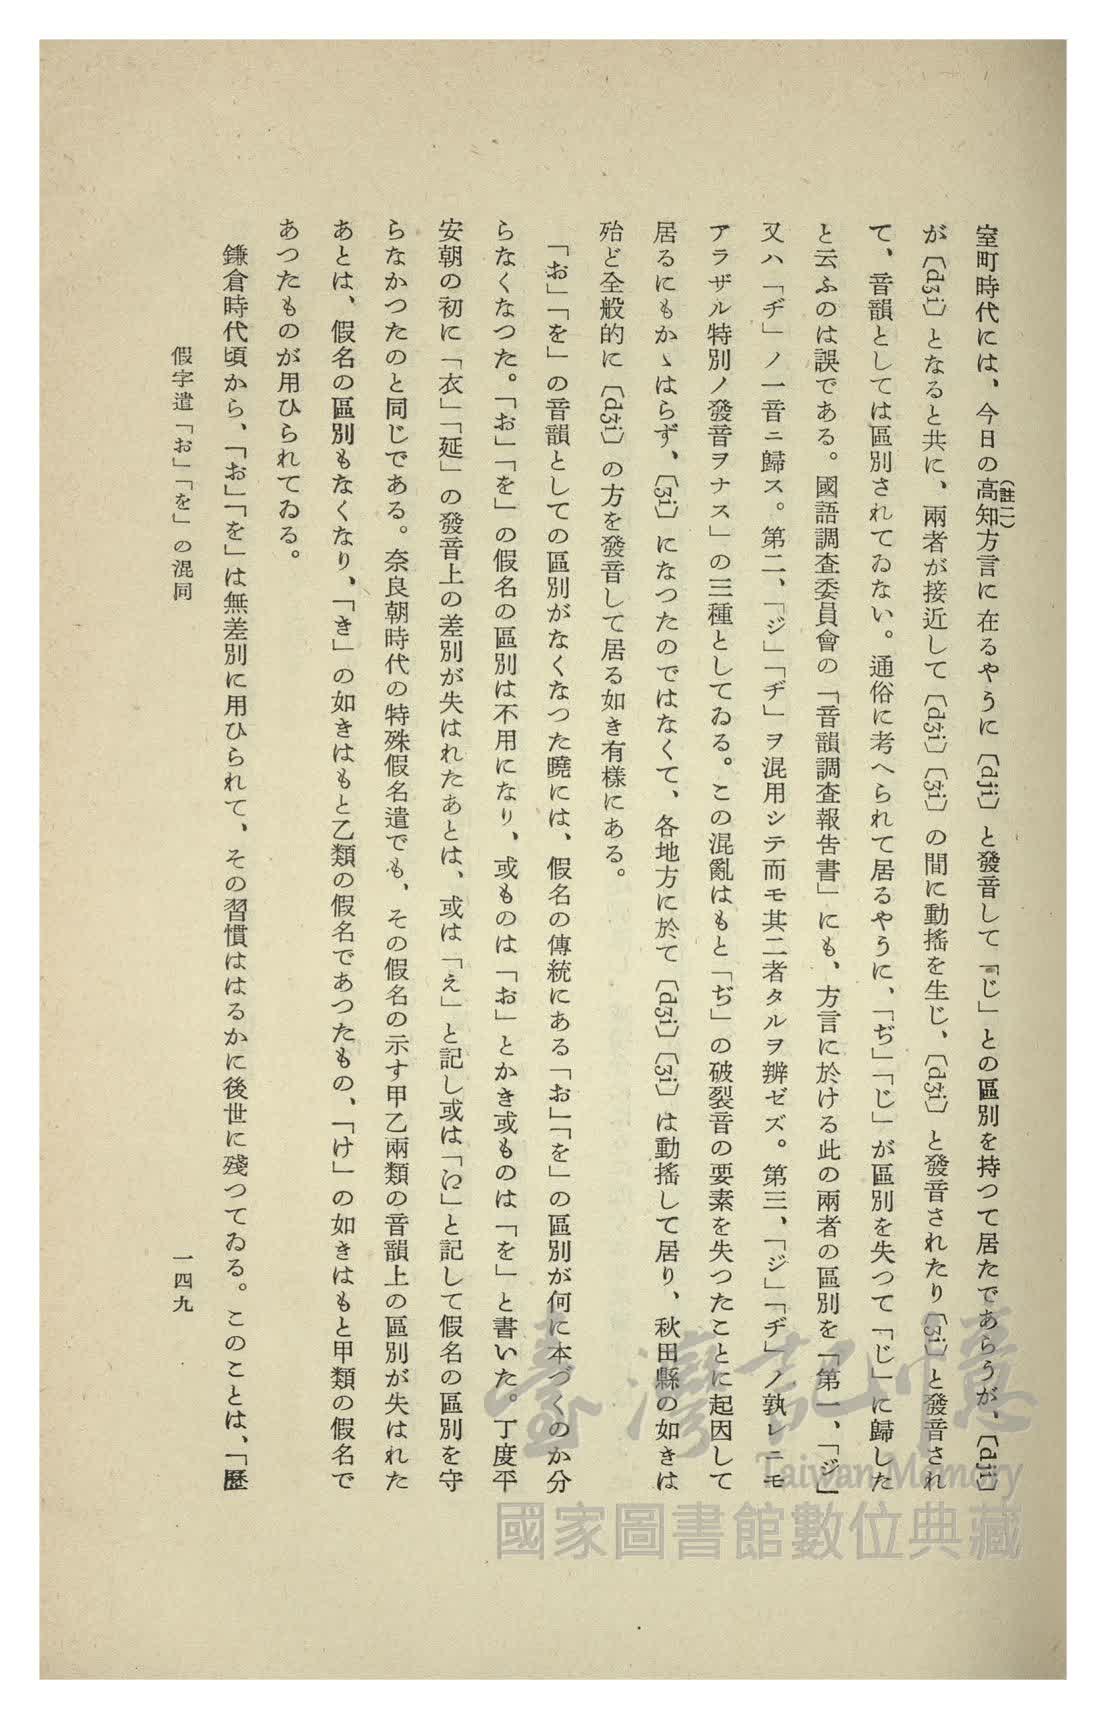 室町時代には、今日の高知方言に在るやうに〔dji〕と發音して「じ」との區別を持つて居たであらうが、〔dji〕
(註二)
が〔dʒi〕となると共に、兩者が接近して〔dʒi〕〔ʒi〕の間に動搖を生じ、〔dʒi〕と發音されたり〔ʒi〕と發音され
て、音韻としては區別されてゐない。通俗に考へられて居るやうに、「ぢ」「じ」が區別を失つて「じ」に歸した
と云ふのは誤である。國語調查委員會の「音韻調查報告書」にも、方言に於ける此の兩者の區別を「第一、「ジ」
又ハ「ヂ」ノ一音ニ歸ス。第二、「ジ」「ヂ」ヲ混用シテ而モ其二者タルヲ辨ゼズ。第三、「ジ」「ヂ」ノ孰レニモ
アラザル特別ノ發音ヲナス」の三種としてゐる。この混亂はもと「ぢ」の破裂音の要素を失つたことに起因して
居るにもかゝはらず、〔ʒi〕になつたのではなくて、各地方に於て〔dʒi〕〔ʒi〕は動搖して居り、秋田縣の如きは
殆ど全般的に〔dʒi〕の方を發音して居る如き有樣にある。
「お」「を」の音韻としての區別がなくなつた曉には、假名の傳統にある「お」「を」の區別が何に本づくのか分
らなくなつた。「お」「を」の假名の區別は不用になり、或ものは「お」とかき或ものは「を」と書いた。丁度平
安朝の初に「衣」「延」の發音上の差別が失はれたあとは、或は「え」と記し或は「𛀁」と記して假名の區別を守
らなかつたのと同じである。奈良朝時代の特殊假名遣でも、その假名の示す甲乙兩類の音韻上の區別が失はれた
あとは、假名の區別もなくなり、「き」の如きはもと乙類の假名であつたもの、「け」の如きはもと甲類の假名で
あつたものが用ひられてゐる。
鎌倉時代頃から、「お」「を」は無差別に用ひられて、その習慣ははるかに後世に殘つてゐる。このことは、「歷
假字遣「お」「を」の混同
一四九
臺灣記憶
Taiwan Memory
國家圖書館數位典藏